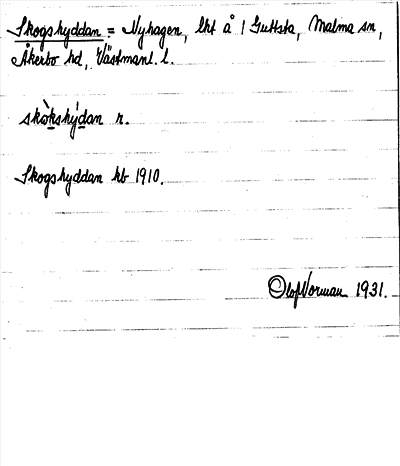 Skogshyddan = Nyhagen, lht å 1 Guttsta, Malma sn,
Åkerbo hd, Västmanl. l.
skò̀kshýdan n.
Skogshyddan kb 1910.
Olof Norman 1931.